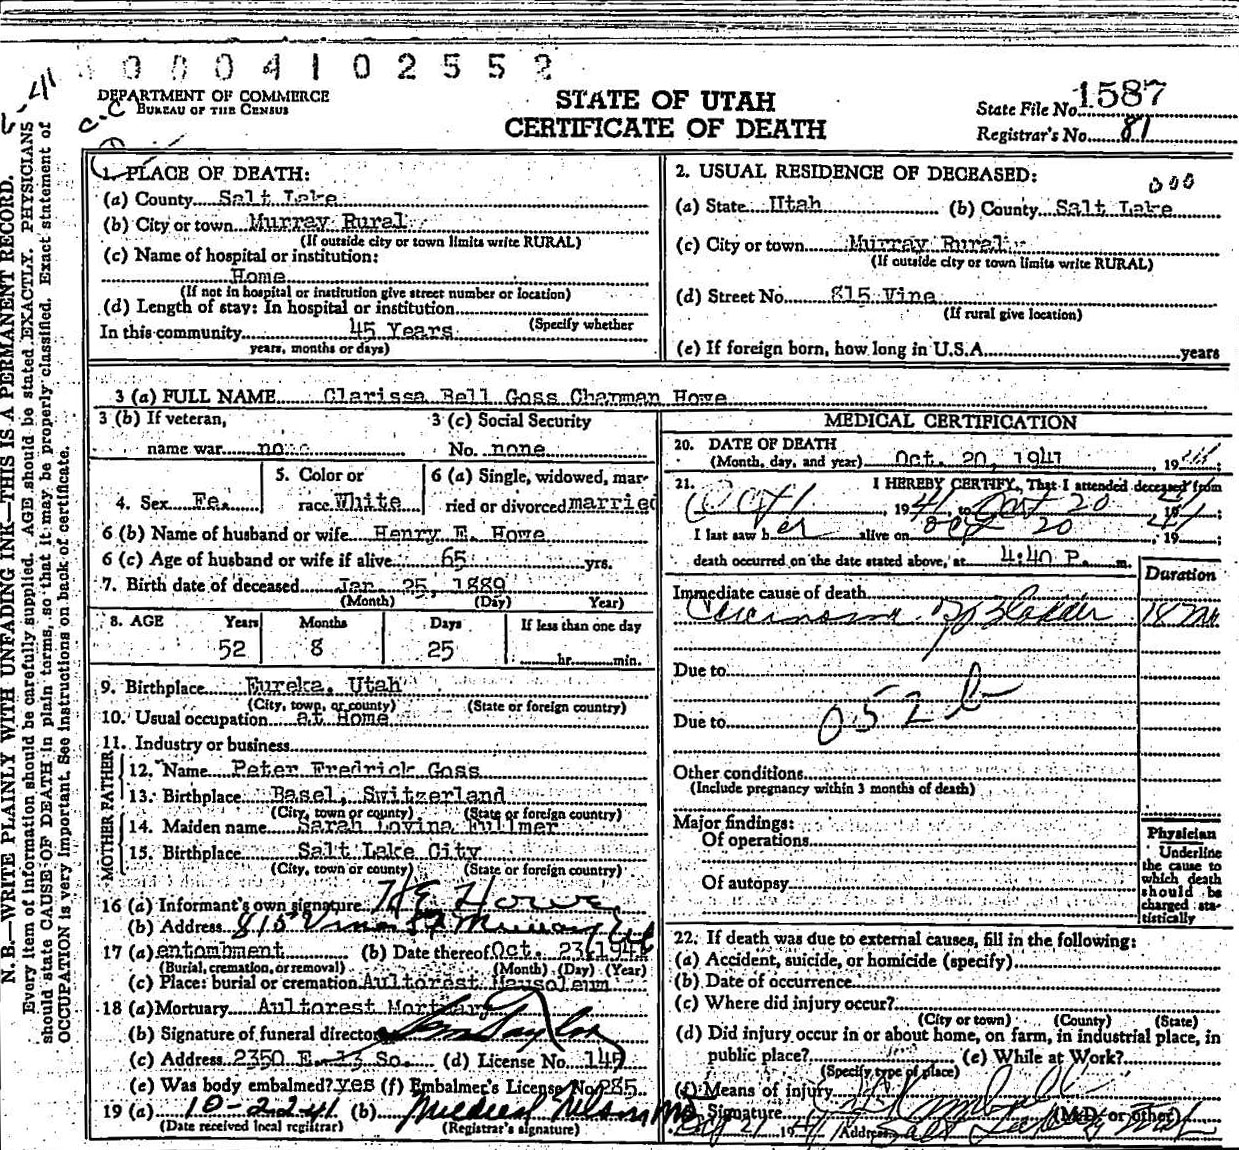 0004102552
DEPARTMENT OF COMMERCE
BUREAU OF THE CENSUS
STATE OF UTAH
CERTIFICATE OF DEATH
State File No. 1587
Registrar's No. 81
N. B.—WRITE PLAINLY WITH UNFADING INK—THIS IS A PERMANENT RECORD.
Every item of information should be carefully supplied. AGE should be stated EXACTLY. PHYSICIANS
should state CAUSE OF DEATH in plain terms, so that it may be properly classified. Exact statement of
OCCUPATION is very important. See instructions on back of certificate.
1. PLACE OF DEATH:
(a) County Salt Lake
(b) City or town Murray Rural
(If outside city or town limits write RURAL)
(c) Name of hospital or institution:
Home
(If not in hospital or institution give street number or location)
(d) Length of stay: In hospital or institution
(Specify whether
In this community 45 Years
years, months or days)
2. USUAL RESIDENCE OF DECEASED:
000
(a) State Utah (b) County Salt Lake
(c) City or town Murray Rural
(If outside city or town limits write RURAL)
(d) Street No. 815 Vine
(If rural give location)
(e) If foreign born, how long in U.S.A. years
3 (a) FULL NAME Clarissa Bell Goss Chapman Howe
3 (b) If veteran,
name war none
3 (c) Social Security
No. none
4. Sex Fe.
5. Color or
race White
6 (a) Single, widowed, mar-
ried or divorced married
6 (b) Name of husband or wife Henry E. Howe
6 (c) Age of husband or wife if alive 65 yrs.
7. Birth date of deceased Jan. 25, 1889
(Month) (Day) Year)
8. AGE Years Months Days If less than one day
52 8 25 hr. min.
9. Birthplace Eureka, Utah
(City, town, or county) (State or foreign country)
10. Usual occupation at Home
11. Industry or business
FATHER
12. Name Peter Fredrick Goss
13. Birthplace Basel, Switzerland
(City, town or county) (State or foreign country)
MOTHER
14. Maiden name Sarah Lovina Fullmer
15. Birthplace Salt Lake City
(City, town or county) (State or foreign country)
16 (a) Informant's own signature H E Howe
(b) Address 815 Vine St Murray Utah
17 (a) entombment (b) Date thereof Oct. 23, 1941
(Burial, cremation, or removal) (Month) (Day) (Year)
(c) Place: burial or cremation Aultorest Mausoleum
18 (a) Mortuary Aultorest Mortuary
(b) Signature of funeral director Taylor
(c) Address 2350 E. 13 So. (d) License No. 145
(e) Was body embalmed? yes (f) Embalmer's License No. 285
19 (a) 10-22-41 (b) Mildred Nelson MD
(Date received local registrar) (Registrar's signature)
MEDICAL CERTIFICATION
20. DATE OF DEATH
(Month, day, and year) Oct. 20, 1941 19
21. I HEREBY CERTIFY, That I attended deceased from
Oct 1 1941, to Oct 20 1941;
I last saw h er alive on Oct 20, 1941;
death occurred on the date stated above, at 4:40 P. m.
Duration
Immediate cause of death
Carcinoma of Bladder 18 Mo
Due to
Due to 052 b
Other conditions
(Include pregnancy within 3 months of death)
Major findings:
Of operations
Of autopsy
Physician
Underline
the cause to
which death
should be
charged sta-
tistically
22. If death was due to external causes, fill in the following:
(a) Accident, suicide, or homicide (specify)
(b) Date of occurrence
(c) Where did injury occur?
(City or town) (County) (State)
(d) Did injury occur in or about home, on farm, in industrial place, in
public place? (e) While at Work?
(Specify type of place)
(f) Means of injury
Signature (M.D. or other)
Oct 21 1941 Address Salt Lake City Utah